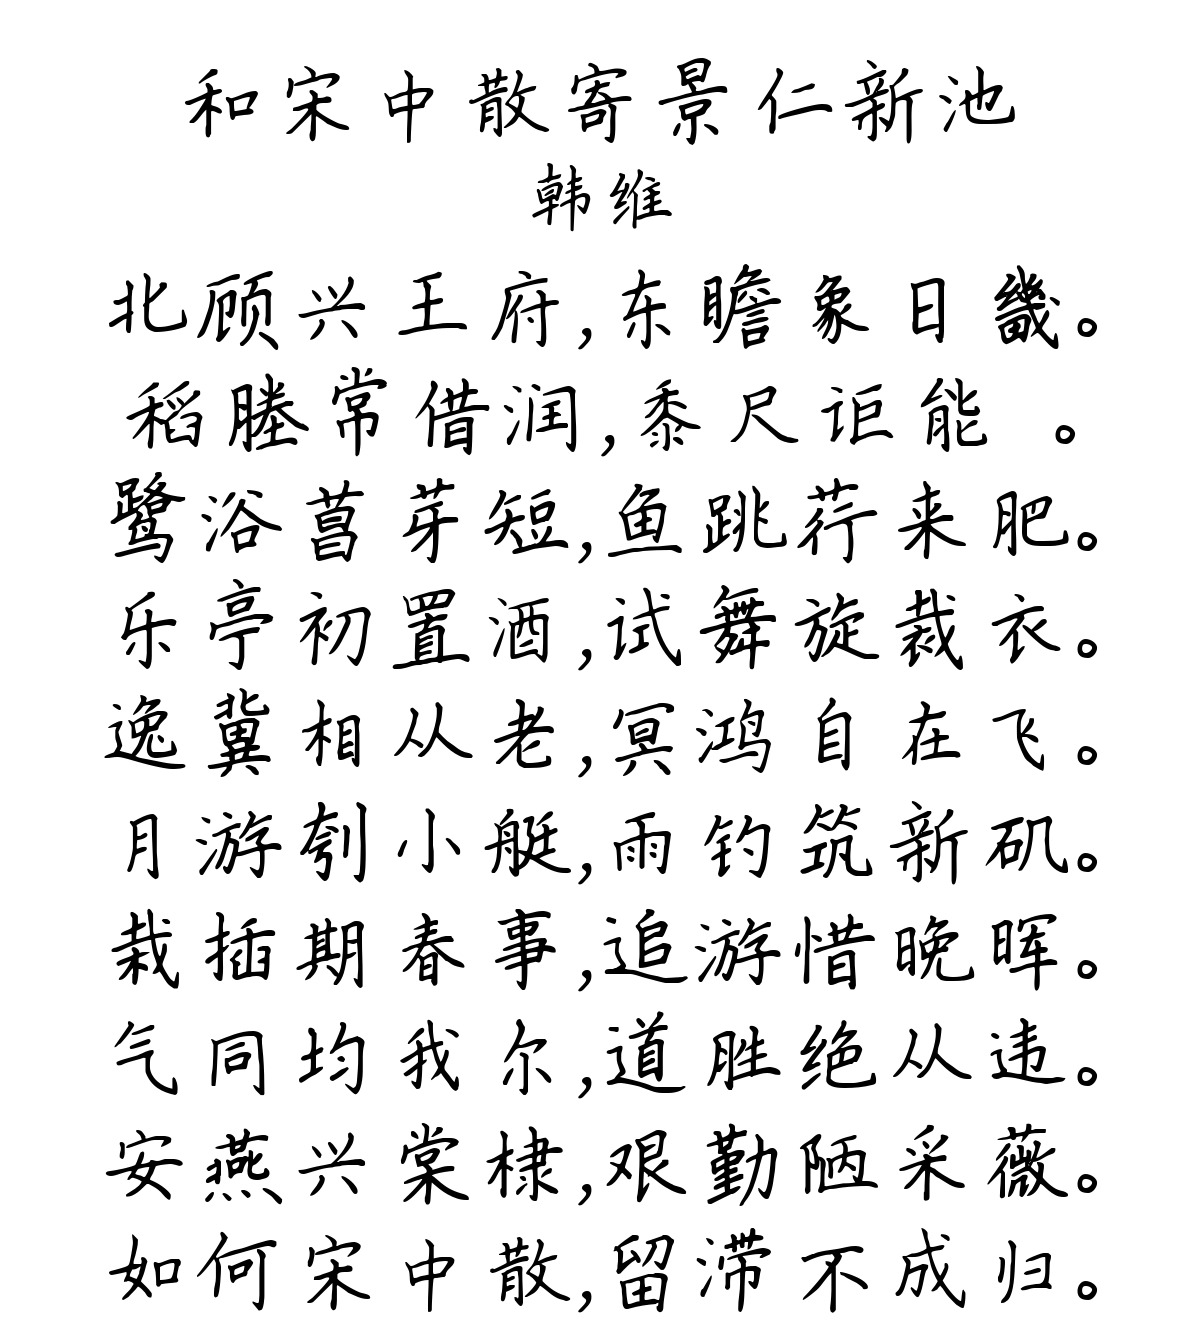 和宋中散寄景仁新池
韩维
北顾兴王府,东瞻象日畿。
稻塍常借润,黍尺讵能 。
鹭浴菖芽短,鱼跳荇来肥。
乐亭初置酒,试舞旋裁衣。
逸冀相从老,冥鸿自在飞。
月游刳小艇,雨钓筑新矶。
栽插期春事,追游惜晚晖。
气同均我尔,道胜绝从违。
安燕兴棠棣,艰勤陋采薇。
如何宋中散,留滞不成归。